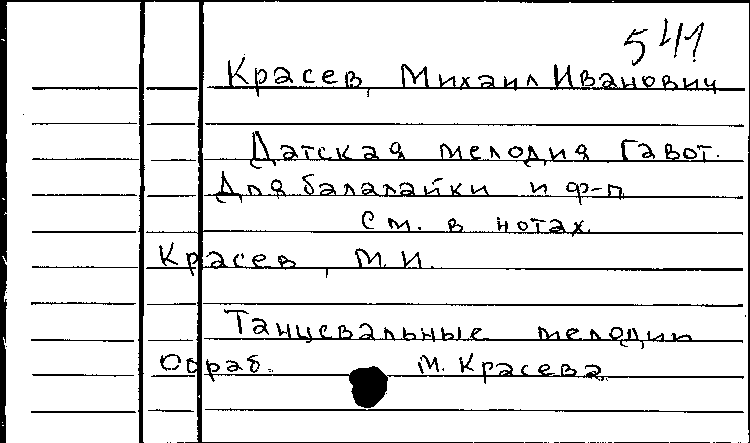 541
Красев, Михаил Иванович
Датская мелодия Гавот.
Для балалайки и ф-п
См. в нотах.
Красев, М. И.
Танцевальные мелодии
Обраб. М. Красева